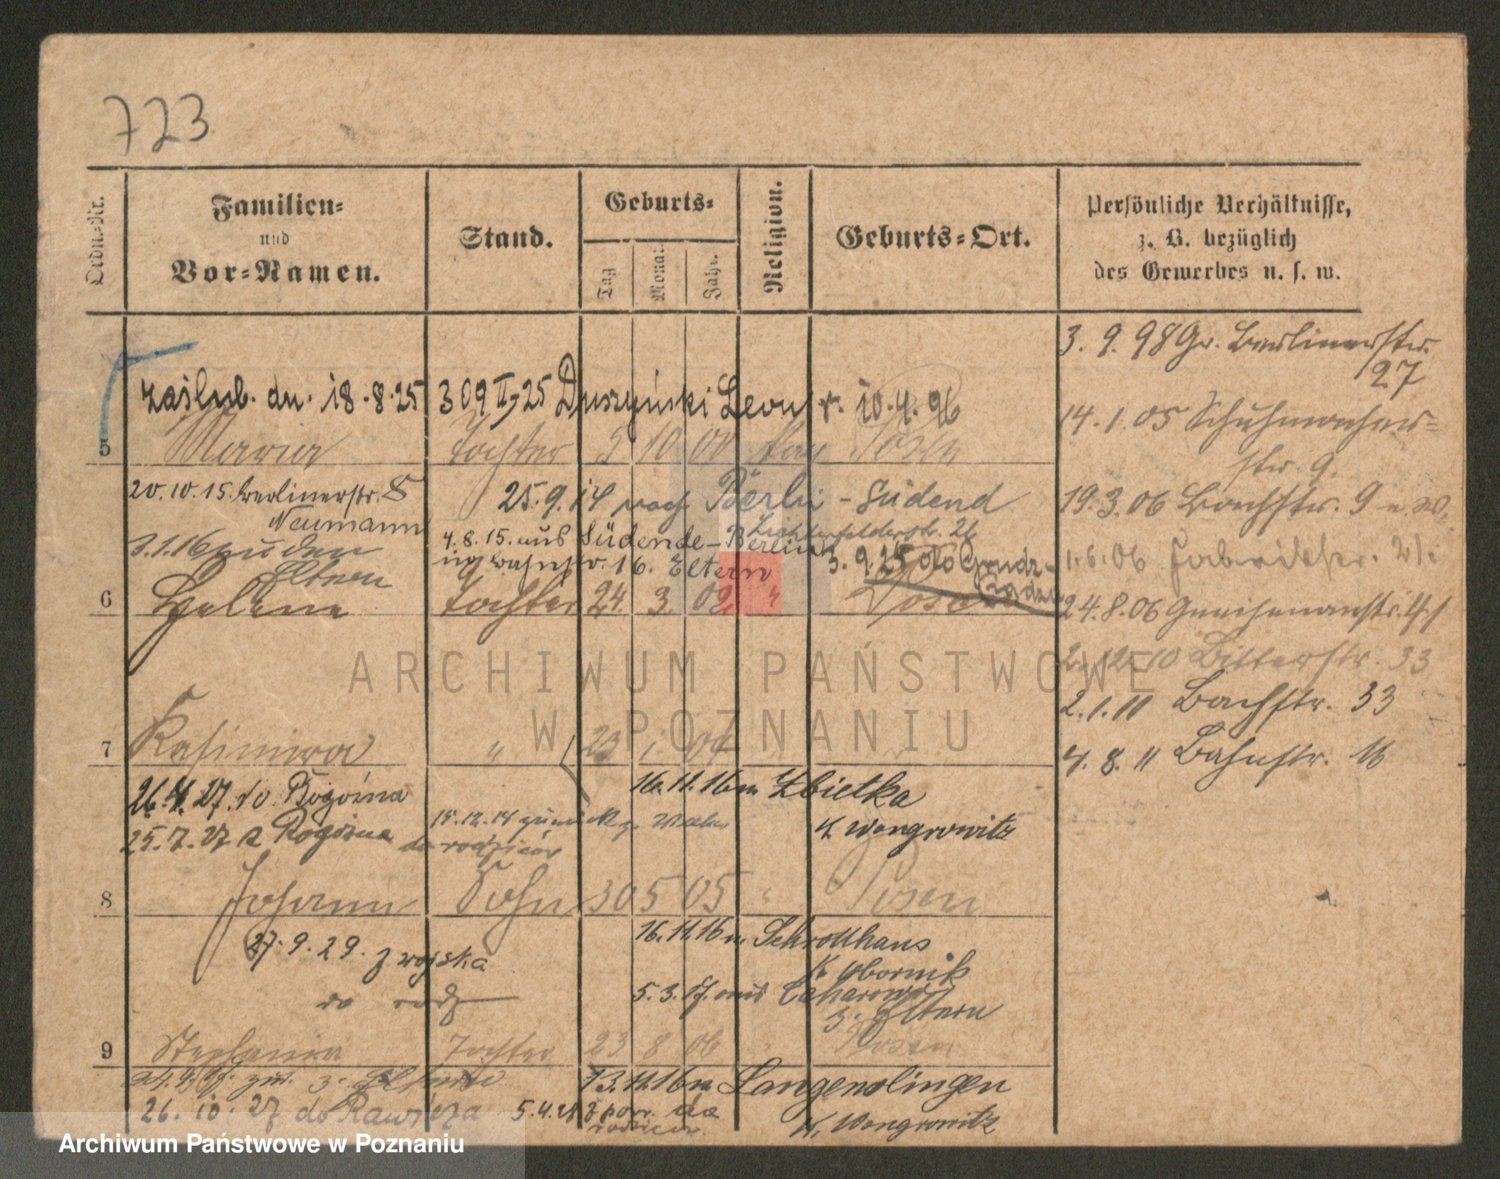 723
Ordn.-Nr.
Familien-
und
Vor-Namen.
Stand.
Geburts-
Tag
Monat
Jahr.
Religion.
Geburts-Ort.
Persönliche Verhältnisse,
z. B. bezüglich
des Gewerbes u. s. w.
3. 9. 98 Gr. Berlinerstr.
27
zaślub. dn. 18.8.25 309 II/25 Duszyński Leon r. 10.4.96
14. 1. 05 Schuhmacher-
str. 9.
5 Maria Tochter 5 10 00 Posen
20.10.15. Berlinerstr. 8
Neumann
25.9.14 nach Berlin-Südend
19.3.06 Bachstr. 9
Lichterfelderstr. 26
3.1.16 zu den
Eltern
4.8.15. aus Südende-Berlin
Bahnstr. 16. Eltern
3.9.25 do
1.6.06
6 Helene Tochter 24 3 02 " Posen
24.8.06
2.12.10 Bitterstr. 33
2.1.11 Bachstr. 33
7 Kasimira " 23 1 04
4. 8. 11 Bahnstr. 16
26.4.27. do Rogoźna
16.11.16 n Zbietka
25.7.27 z Rogoźna do rodziców
15.12.14 zurück
K. Wongrowitz
8 Johann Sohn 30 5 05 " Posen
27.9.29. z wojska
do rodz
16.11.16 n. Schrotthaus
K. Obornik
5.3.17. aus
z. Eltern
9 Stefania Tochter 23 8 06 " Posen
z. Eltern
13.11.16 n Langenolingen
26.10.27 do Rawicza
5.4.28 z pow. do
rodziców.
K. Wongrowitz
ARCHIWUM PAŃSTWOWE
W POZNANIU
Archiwum Państwowe w Poznaniu